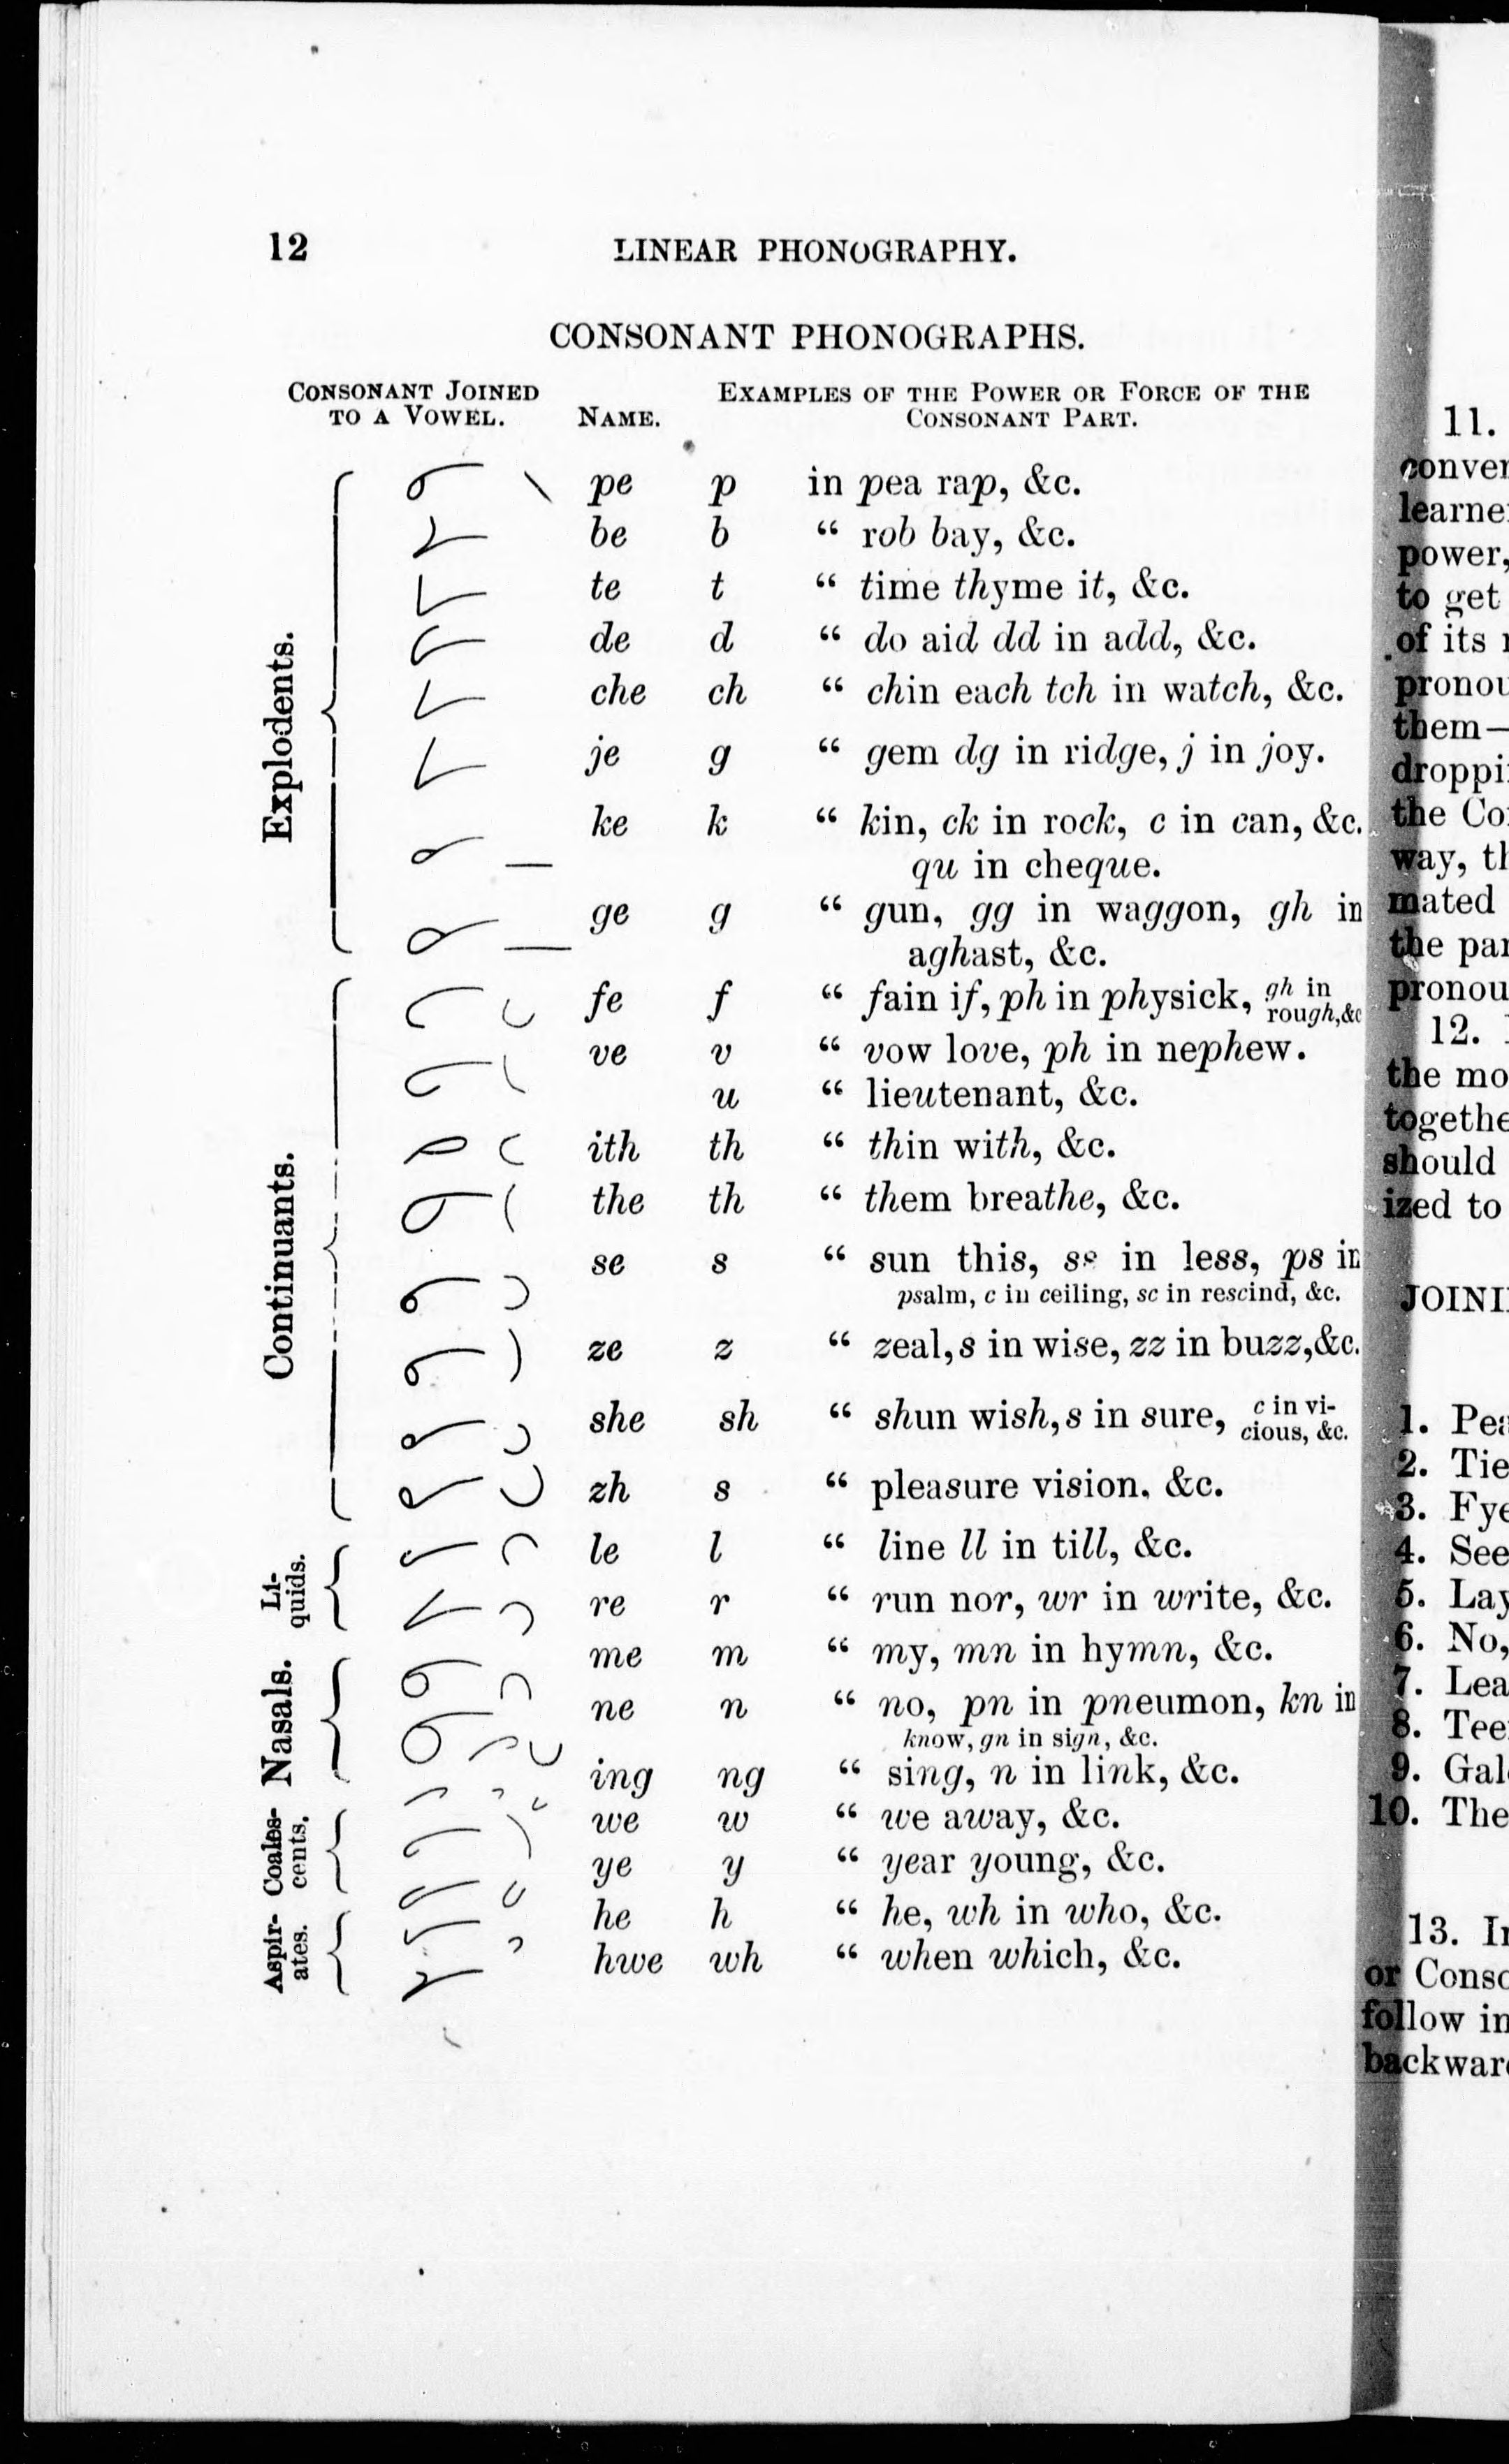 12 LINEAR PHONOGRAPHY.
CONSONANT PHONOGRAPHS.
CONSONANT JOINED TO A VOWEL. NAME. EXAMPLES OF THE POWER OR FORCE OF THE CONSONANT PART.
Explodents.
pe p in pea rap, &c.
be b “ rob bay, &c.
te t “ time thyme it, &c.
de d “ do aid dd in add, &c.
che ch “ chin each tch in watch, &c.
je g “ gem dg in ridge, j in joy.
ke k “ kin, ck in rock, c in can, &c.
qu in cheque.
ge g “ gun, gg in waggon, gh in
aghast, &c.
Continuants.
fe f “ fain if, ph in physick, gh in rough, &c
ve v “ vow love, ph in nephew.
u “ lieutenant, &c.
ith th “ thin with, &c.
the th “ them breathe, &c.
se s “ sun this, ss in less, ps in
psalm, c in ceiling, sc in rescind, &c.
ze z “ zeal, s in wise, zz in buzz, &c.
she sh “ shun wish, s in sure, c in vi-cious, &c.
zh s “ pleasure vision, &c.
Li-
quids.
le l “ line ll in till, &c.
re r “ run nor, wr in write, &c.
Nasals.
me m “ my, mn in hymn, &c.
ne n “ no, pn in pneumon, kn in
know, gn in sign, &c.
ing ng “ sing, n in link, &c.
Coales-
cents,
we w “ we away, &c.
ye y “ year young, &c.
Aspir-
ates.
he h “ he, wh in who, &c.
hwe wh “ when which, &c.
11.
conver
learne
power,
to get
of its
pronou
them—
droppi
the Co
way, th
mated
the par
pronou
12.
the mo
togethe
should
ized to
JOINI
1. Pea
2. Tie
3. Fye
4. See
5. Lay
6. No,
7. Lea
8. Tee
9. Gal
10. The
13. In
or Conso
follow in
backward